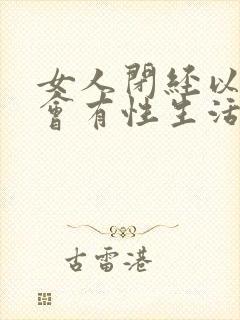 女人閉經以
會有性生活
古雷港